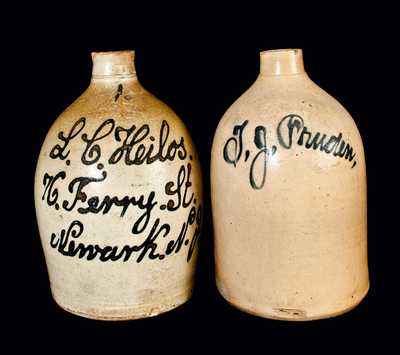 L. C. Heilos.
Ferry. St.
Newark. N. J.
J. J. Pruden,